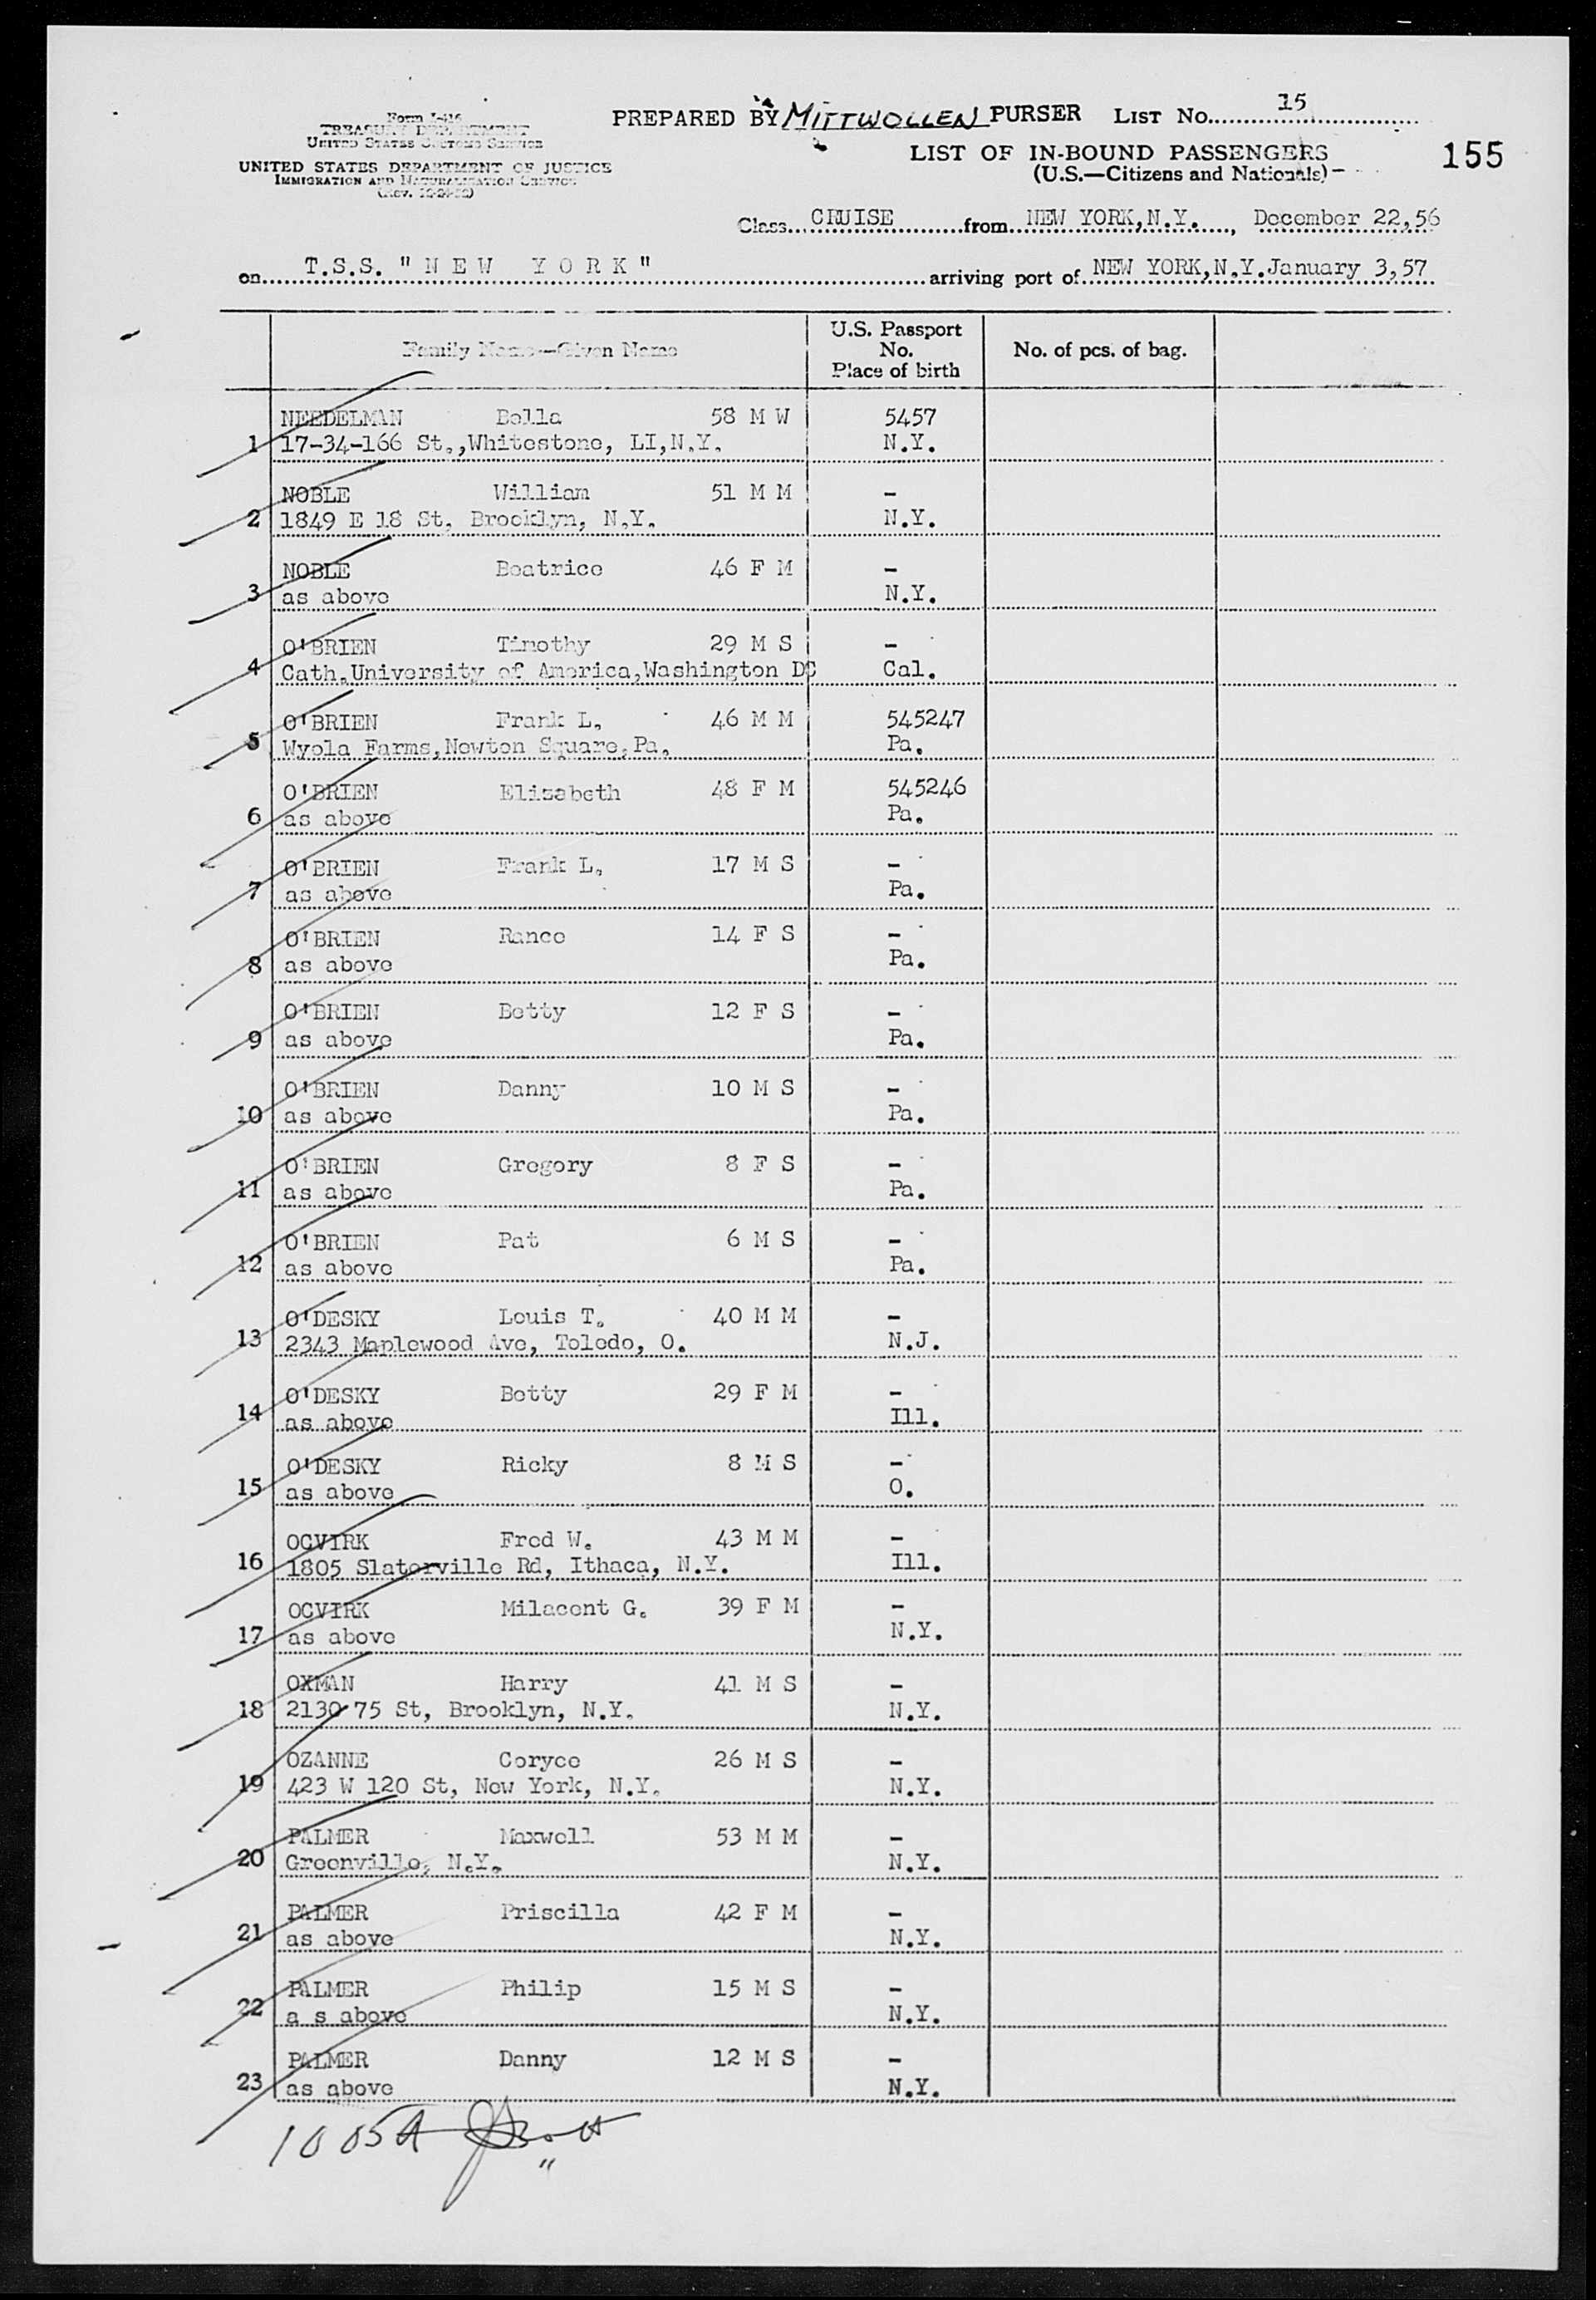 Form I-416
TREASURY DEPARTMENT
UNITED STATES CUSTOMS SERVICE
UNITED STATES DEPARTMENT OF JUSTICE
IMMIGRATION AND NATURALIZATION SERVICE
PREPARED BY MITTWOLLEN PURSER LIST No. 15
LIST OF IN-BOUND PASSENGERS
(U.S.—Citizens and Nationals)
155
Class CRUISE from NEW YORK,N.Y., December 22,56
on T.S.S. "N E W Y O R K" arriving port of NEW YORK,N.Y. January 3,57
Family Name—Given Name
U.S. Passport No. Place of birth
No. of pcs. of bag.
NEEDELMAN Bella 58 M W 5457
1 17-34-166 St.,Whitestone, LI,N.Y. N.Y.
NOBLE William 51 M M -
2 1849 E 18 St, Brooklyn, N.Y. N.Y.
NOBLE Beatrice 46 F M -
3 as above N.Y.
O'BRIEN Timothy 29 M S -
4 Cath.University of America,Washington DC Cal.
O'BRIEN Frank L. 46 M M 545247
5 Wyola Farms,Newton Square,Pa. Pa.
O'BRIEN Elizabeth 48 F M 545246
6 as above Pa.
O'BRIEN Frank L. 17 M S -
7 as above Pa.
O'BRIEN Ranee 14 F S -
8 as above Pa.
O'BRIEN Betty 12 F S -
9 as above Pa.
O'BRIEN Danny 10 M S -
10 as above Pa.
O'BRIEN Gregory 8 F S -
11 as above Pa.
O'BRIEN Pat 6 M S -
12 as above Pa.
O'DESKY Louis T. 40 M M -
13 2343 Maplewood Ave, Toledo, O. N.J.
O'DESKY Betty 29 F M -
14 as above Ill.
O'DESKY Ricky 8 M S -
15 as above O.
OCVIRK Fred W. 43 M M -
16 1805 Slaterville Rd, Ithaca, N.Y. Ill.
OCVIRK Milacent G. 39 F M -
17 as above N.Y.
OXMAN Harry 41 M S -
18 2130 75 St, Brooklyn, N.Y. N.Y.
OZANNE Coryce 26 M S -
19 423 W 120 St, New York, N.Y. N.Y.
PALMER Maxwell 53 M M -
20 Greenville, N.Y. N.Y.
PALMER Priscilla 42 F M -
21 as above N.Y.
PALMER Philip 15 M S -
22 a s above N.Y.
PALMER Danny 12 M S -
23 as above N.Y.